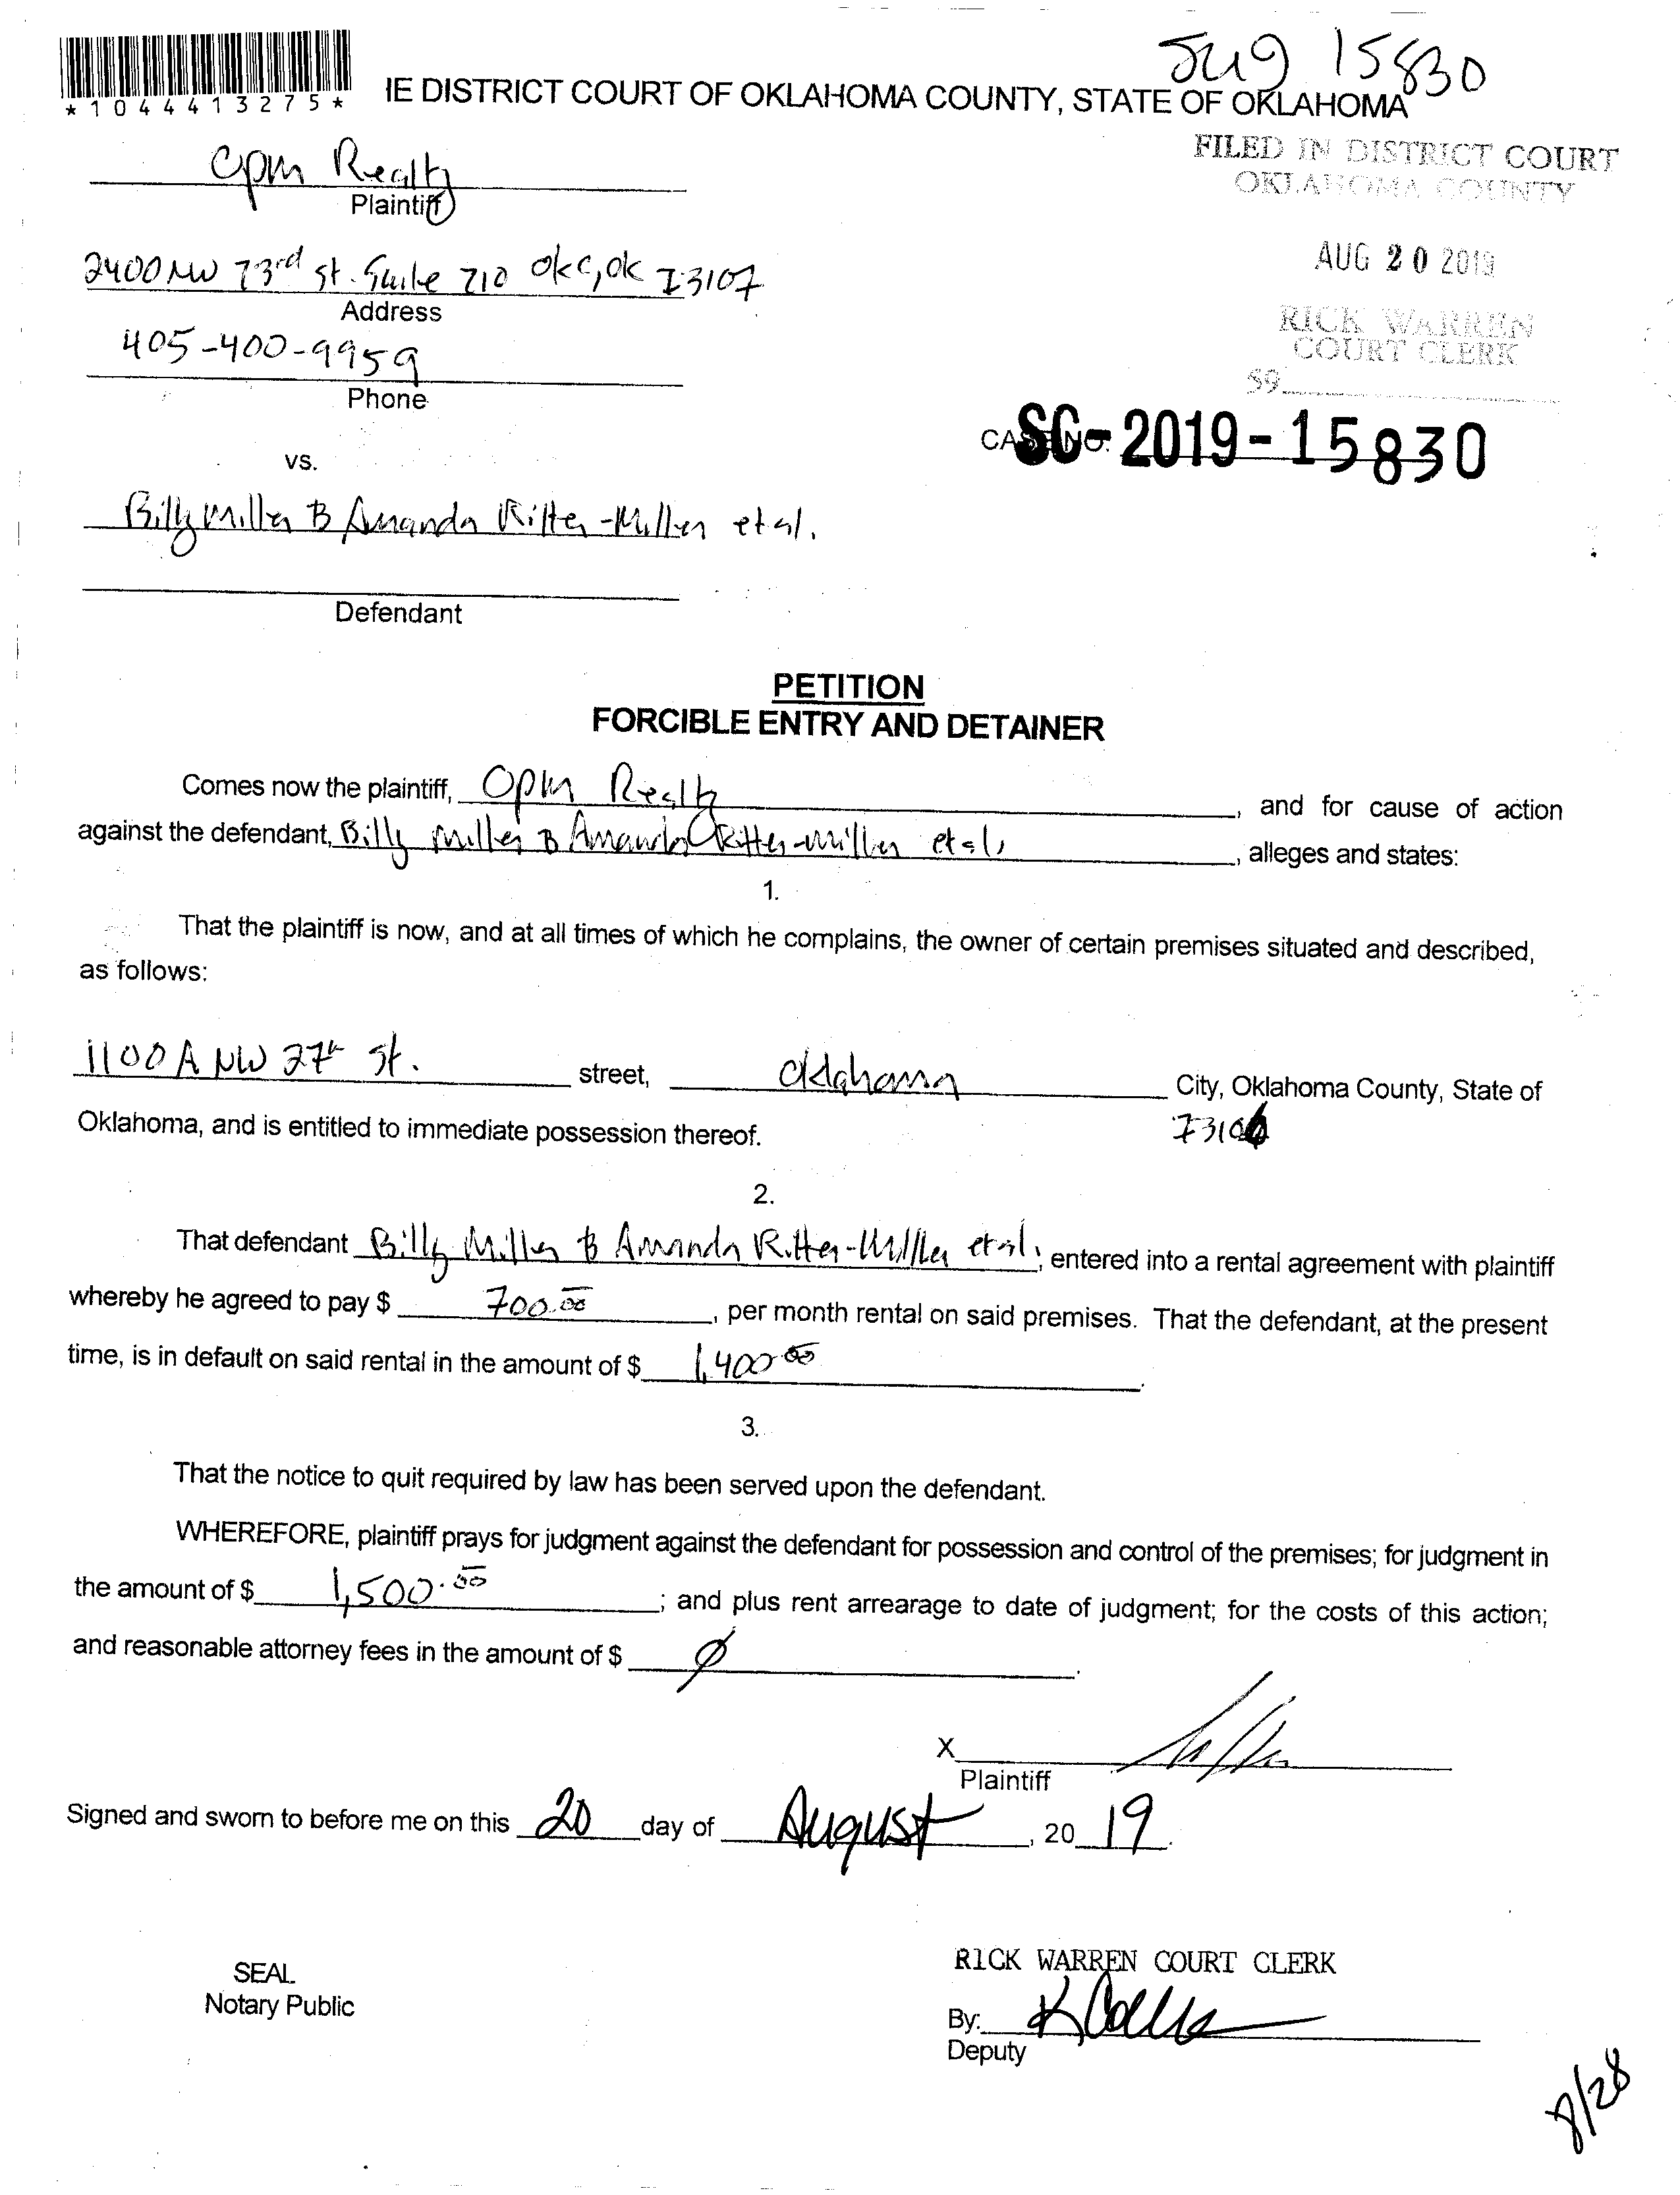 Jug 15830
*1044413275*
IE DISTRICT COURT OF OKLAHOMA COUNTY, STATE OF OKLAHOMA
FILED IN DISTRICT COURT
OKLAHOMA COUNTY
Opm Realty
Plaintiff
AUG 20 2019
2400 NW 73rd St. Suite 210 OKC, OK 73107
Address
RICK WARREN
COURT CLERK
405-400-9959
Phone
59
CASE NO. SC-2019-15830
vs.
Billy Miller & Amanda Ritter-Miller et al.
Defendant
PETITION
FORCIBLE ENTRY AND DETAINER
Comes now the plaintiff, Opm Realty, and for cause of action
against the defendant, Billy Miller & Amanda Ritter-Miller et al, alleges and states:
1.
That the plaintiff is now, and at all times of which he complains, the owner of certain premises situated and described,
as follows:
1100 A NW 27th St. street, Oklahoma City, Oklahoma County, State of
Oklahoma, and is entitled to immediate possession thereof. 73106
2.
That defendant Billy Miller & Amanda Ritter-Miller et al, entered into a rental agreement with plaintiff
whereby he agreed to pay $ 700.00, per month rental on said premises. That the defendant, at the present
time, is in default on said rental in the amount of $ 1,400.00.
3.
That the notice to quit required by law has been served upon the defendant.
WHEREFORE, plaintiff prays for judgment against the defendant for possession and control of the premises; for judgment in
the amount of $ 1,500.00; and plus rent arrearage to date of judgment; for the costs of this action;
and reasonable attorney fees in the amount of $ ∅.
X
Plaintiff
Signed and sworn to before me on this 20 day of August, 20 19.
SEAL
Notary Public
RICK WARREN COURT CLERK
By:
Deputy
8/28